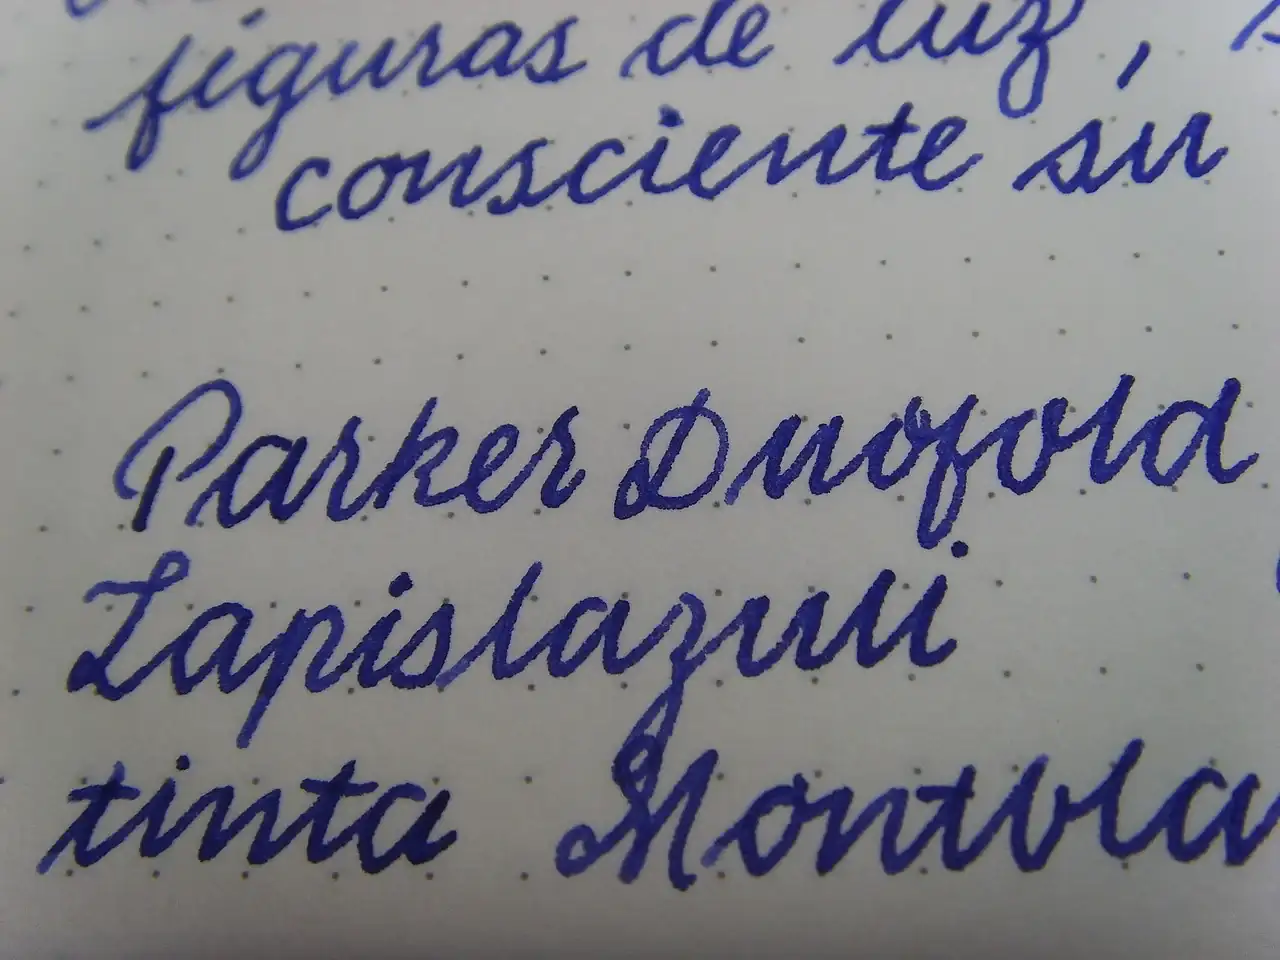 figuras de luz,
consciente su
Parker Duofold
Lapislazuli
tinta Montbla